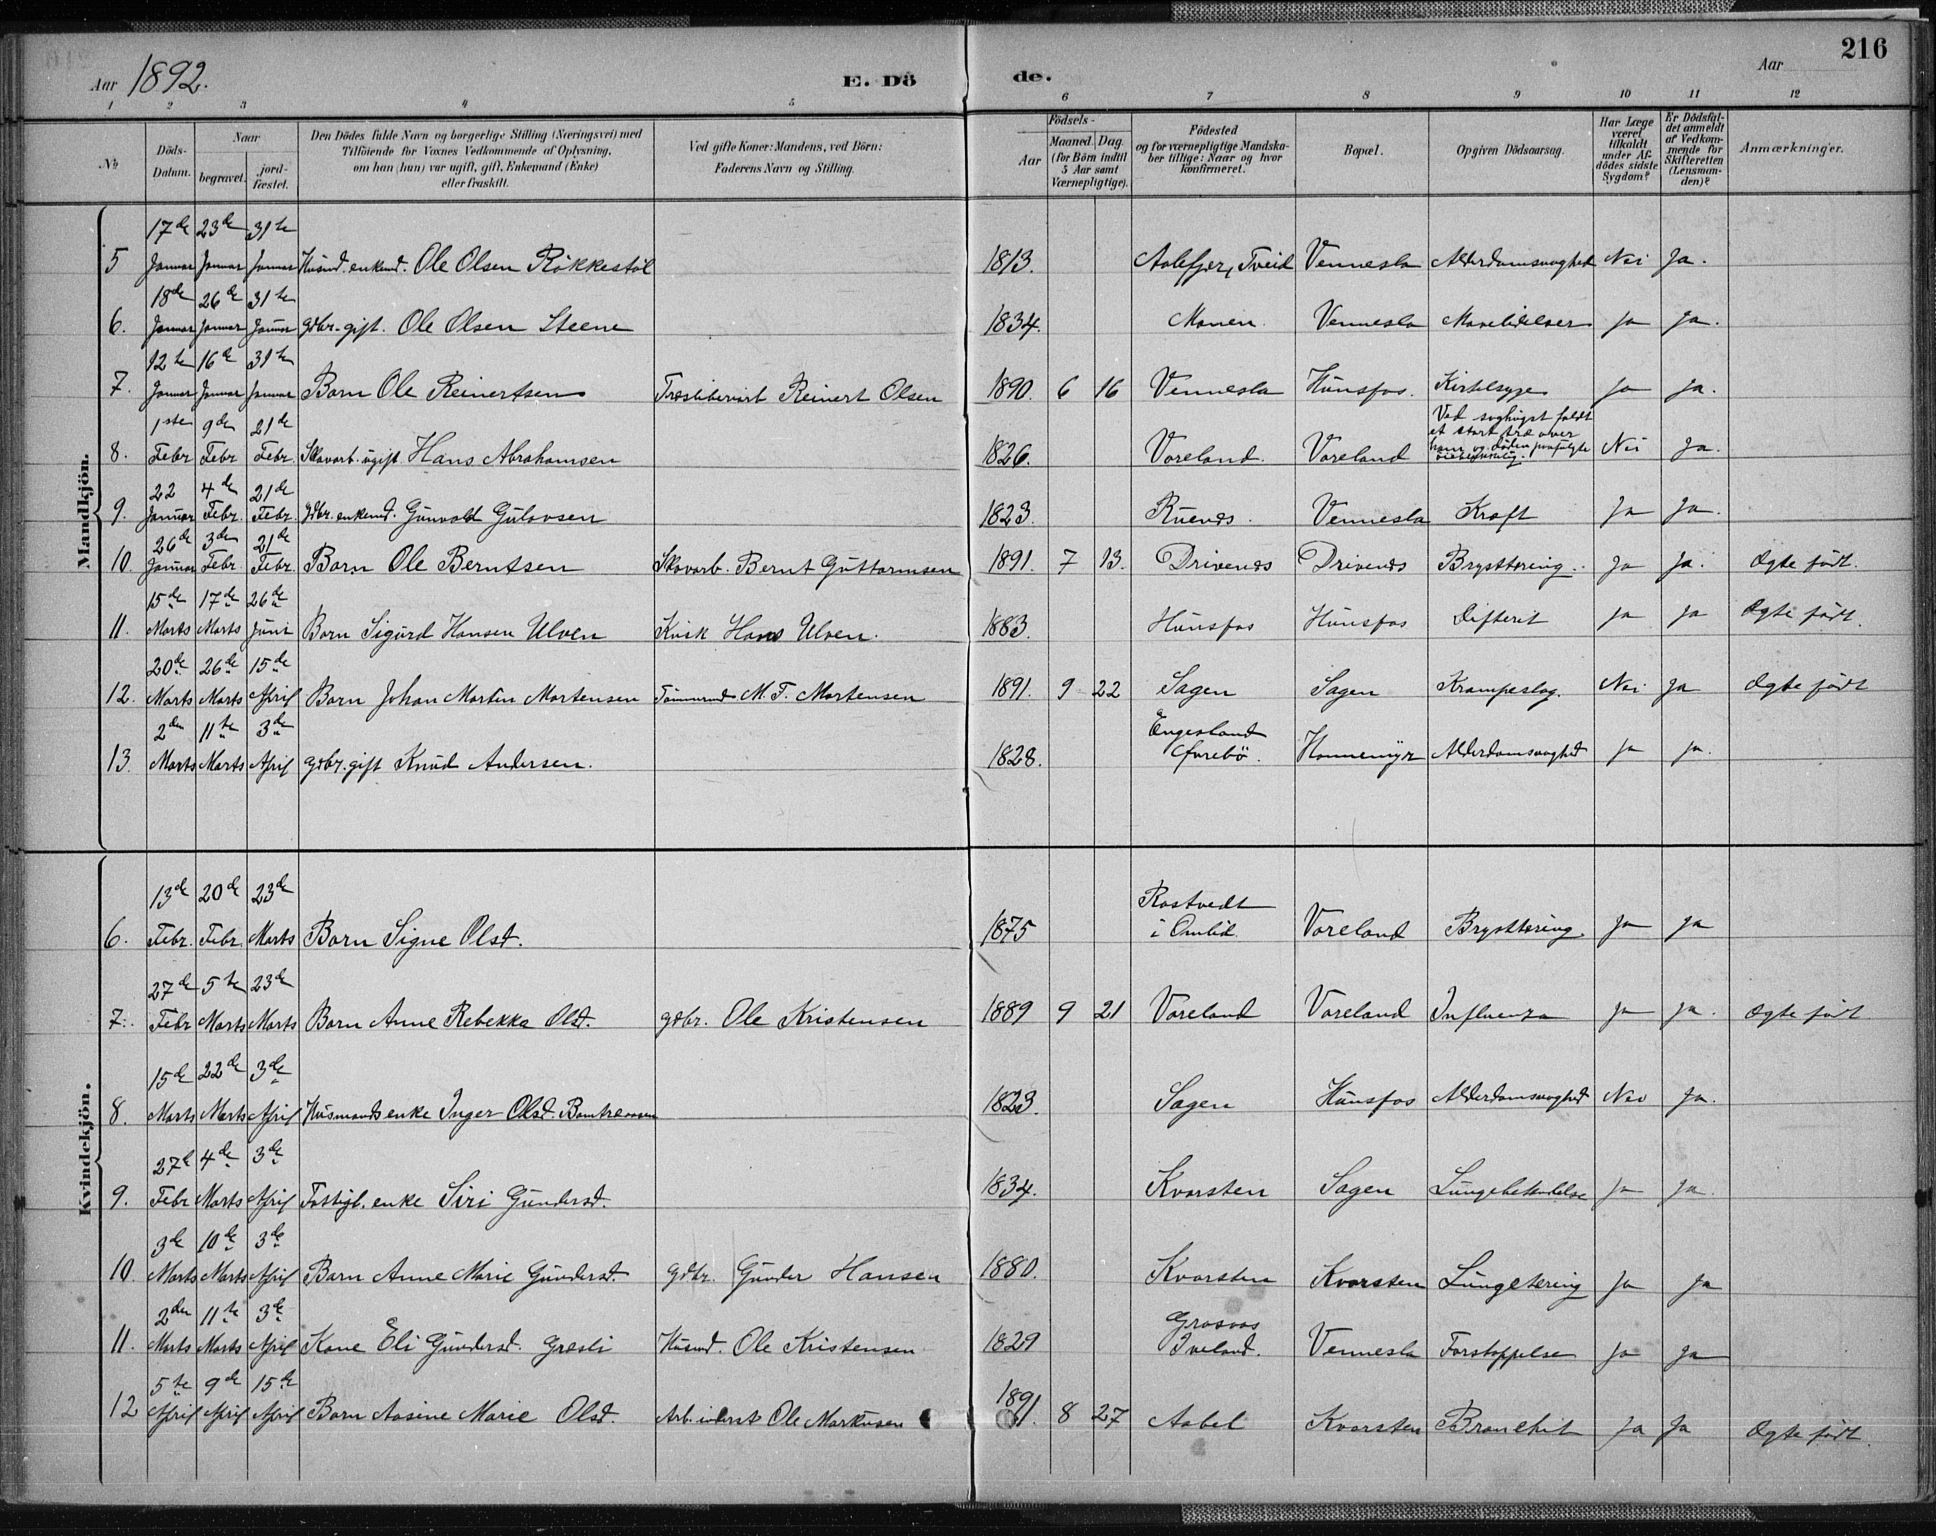 216
Aar 1892.
E. Dö de.
Aar
1 2 3 4 5 6 7 8 9 10 11 12
No
Döds-Datum.
Naar
begravet.
jordfæstet.
Den Dödes fulde Navn og borgerlige Stilling (Næringsvei) med Tilföiende for Voxnes Vedkommende af Oplysning, om han (hun) var ugift, gift, Enkemand (Enke) eller fraskilt.
Ved gifte Koner: Mandens, ved Börn: Faderens Navn og Stilling.
Födsels-
Aar
Maaned. Dag
(for Börn indtil 5 Aar samt Værnepligtige).
Födested og for værnepligtige Mandskaber tillige: Naar og hvor konfirmeret.
Bopæl.
Opgiven Dödsaarsag.
Har Læge været tilkaldt under Afdödes sidste Sygdom?
Er Dödsfaldet anmeldt af Vedkommende for Skifteretten (Lensmanden)?
Anmærkninger.
Mandkjön.
5 17de Januar 23de Januar 31te Januar Husmd. enkemd. Ole Olsen Røkkestøl 1813. Aalefjær, Tveid Vennesla Alderdomssvaghed Nei Ja.
6. 18de Januar 26de Januar 31te Januar gdbr. gift. Ole Olsen Steene 1834. Monen. Vennesla Mavelidelser Ja Ja.
7. 12te Januar 16de Januar 31te Januar Barn Ole Reinertsen Træsliberiarb Reinert Olsen 1890. 6 16 Vennesla Hunsfos. Kirtelsyge Ja Ja.
8. 1ste Febr 9de Febr 21de Febr. Skovarb. ugift Hans Abrahamsen 1826. Voreland. Voreland Ved soghugst faldt et stort træ over ham og døden paafulgte øieblikkelig. Nei Ja.
9. 22 Januar 4de Febr. 21de Febr. gdbr. enkemd. Gunvald Gulovsen 1823. Ruenæs. Vennesla Kræft Ja Ja.
10. 26de Januar 3de Febr. 21de Febr Barn Ole Berntsen Skovarb. Bernt Guttormsen 1891. 7 13. Drivenes Drivenes Brysttæring. Ja Ja. Ægte født.
11. 15de Marts 17de Marts 26de Juni Barn Sigurd Hansen Ulven Kusk Hans Ulven. 1883. Hunsfos Hunsfos Difterit Ja Ja Ægte født.
12. 20de Marts 26de Marts 15de April Barn Johan Martin Mortensen Tømmermd M. T. Mortensen 1891. 9 22 Sagen Sagen Krampeslag. Nei Ja Ægte født
13. 2den Marts 11te Marts 3de April gdbr. gift Knud Andersen. 1828. Engesland Øvrebø. Hommemyr Alderdomssvaghed Ja Ja.
Kvindekjön.
6. 13de Febr. 20de Febr. 23de Marts Barn Signe Olsd. 1875 Rostvedt i Omlid. Voreland Brysttæring. Ja Ja
7. 27de Febr 5te Marts 23de Marts Barn Anne Rebekka Olsd. gdbr. Ole Kristensen 1889 9 21 Voreland Voreland Influenza Ja Ja. Ægte født
8. 15de Marts 22de Marts 3de April Husmandsenke Inger Olsd. 1823. Sagen Hunsfos Alderdomssvaghed Nei Ja.
9. 27de Febr 4de Marts 3de April Fattigl. enke Siri Gundersd. 1834. Kvarsten Sagen Lungebetændelse Ja Ja.
10. 3de Marts 10de Marts 3de April Barn Anne Marie Gundersd. gdbr. Gunder Hansen 1880. Kvarsten Kvarsten Lungetæring Ja Ja
11. 2den Marts 11te Marts 3de April Kone Eli Gundersd. Græsli Husmd. Ole Kristensen 1829 Grosaas Iveland. Vennesla Forstoppelse Ja Ja
12 5te April 9de April 15de April Barn Aasine Marie Olsd. Arb. inderst Ole Markusen 1891. 8 27 Aabel Kvarsten Bronchit Ja Ja Ægte født.